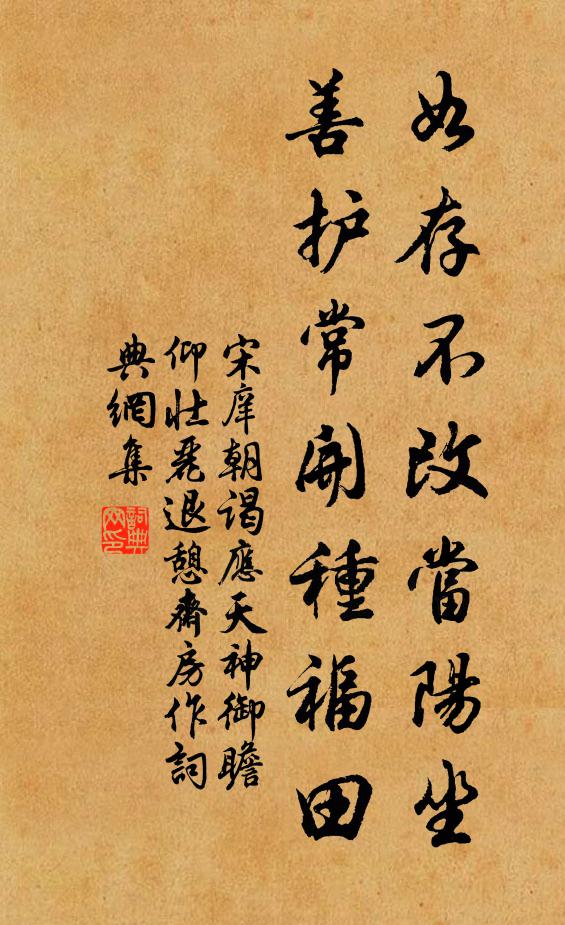 如存不改當陽坐
善护常開種福田
宋庠朝谒應天神御瞻
仰壮麗退憩齋房作詞
典網集
詞典網印